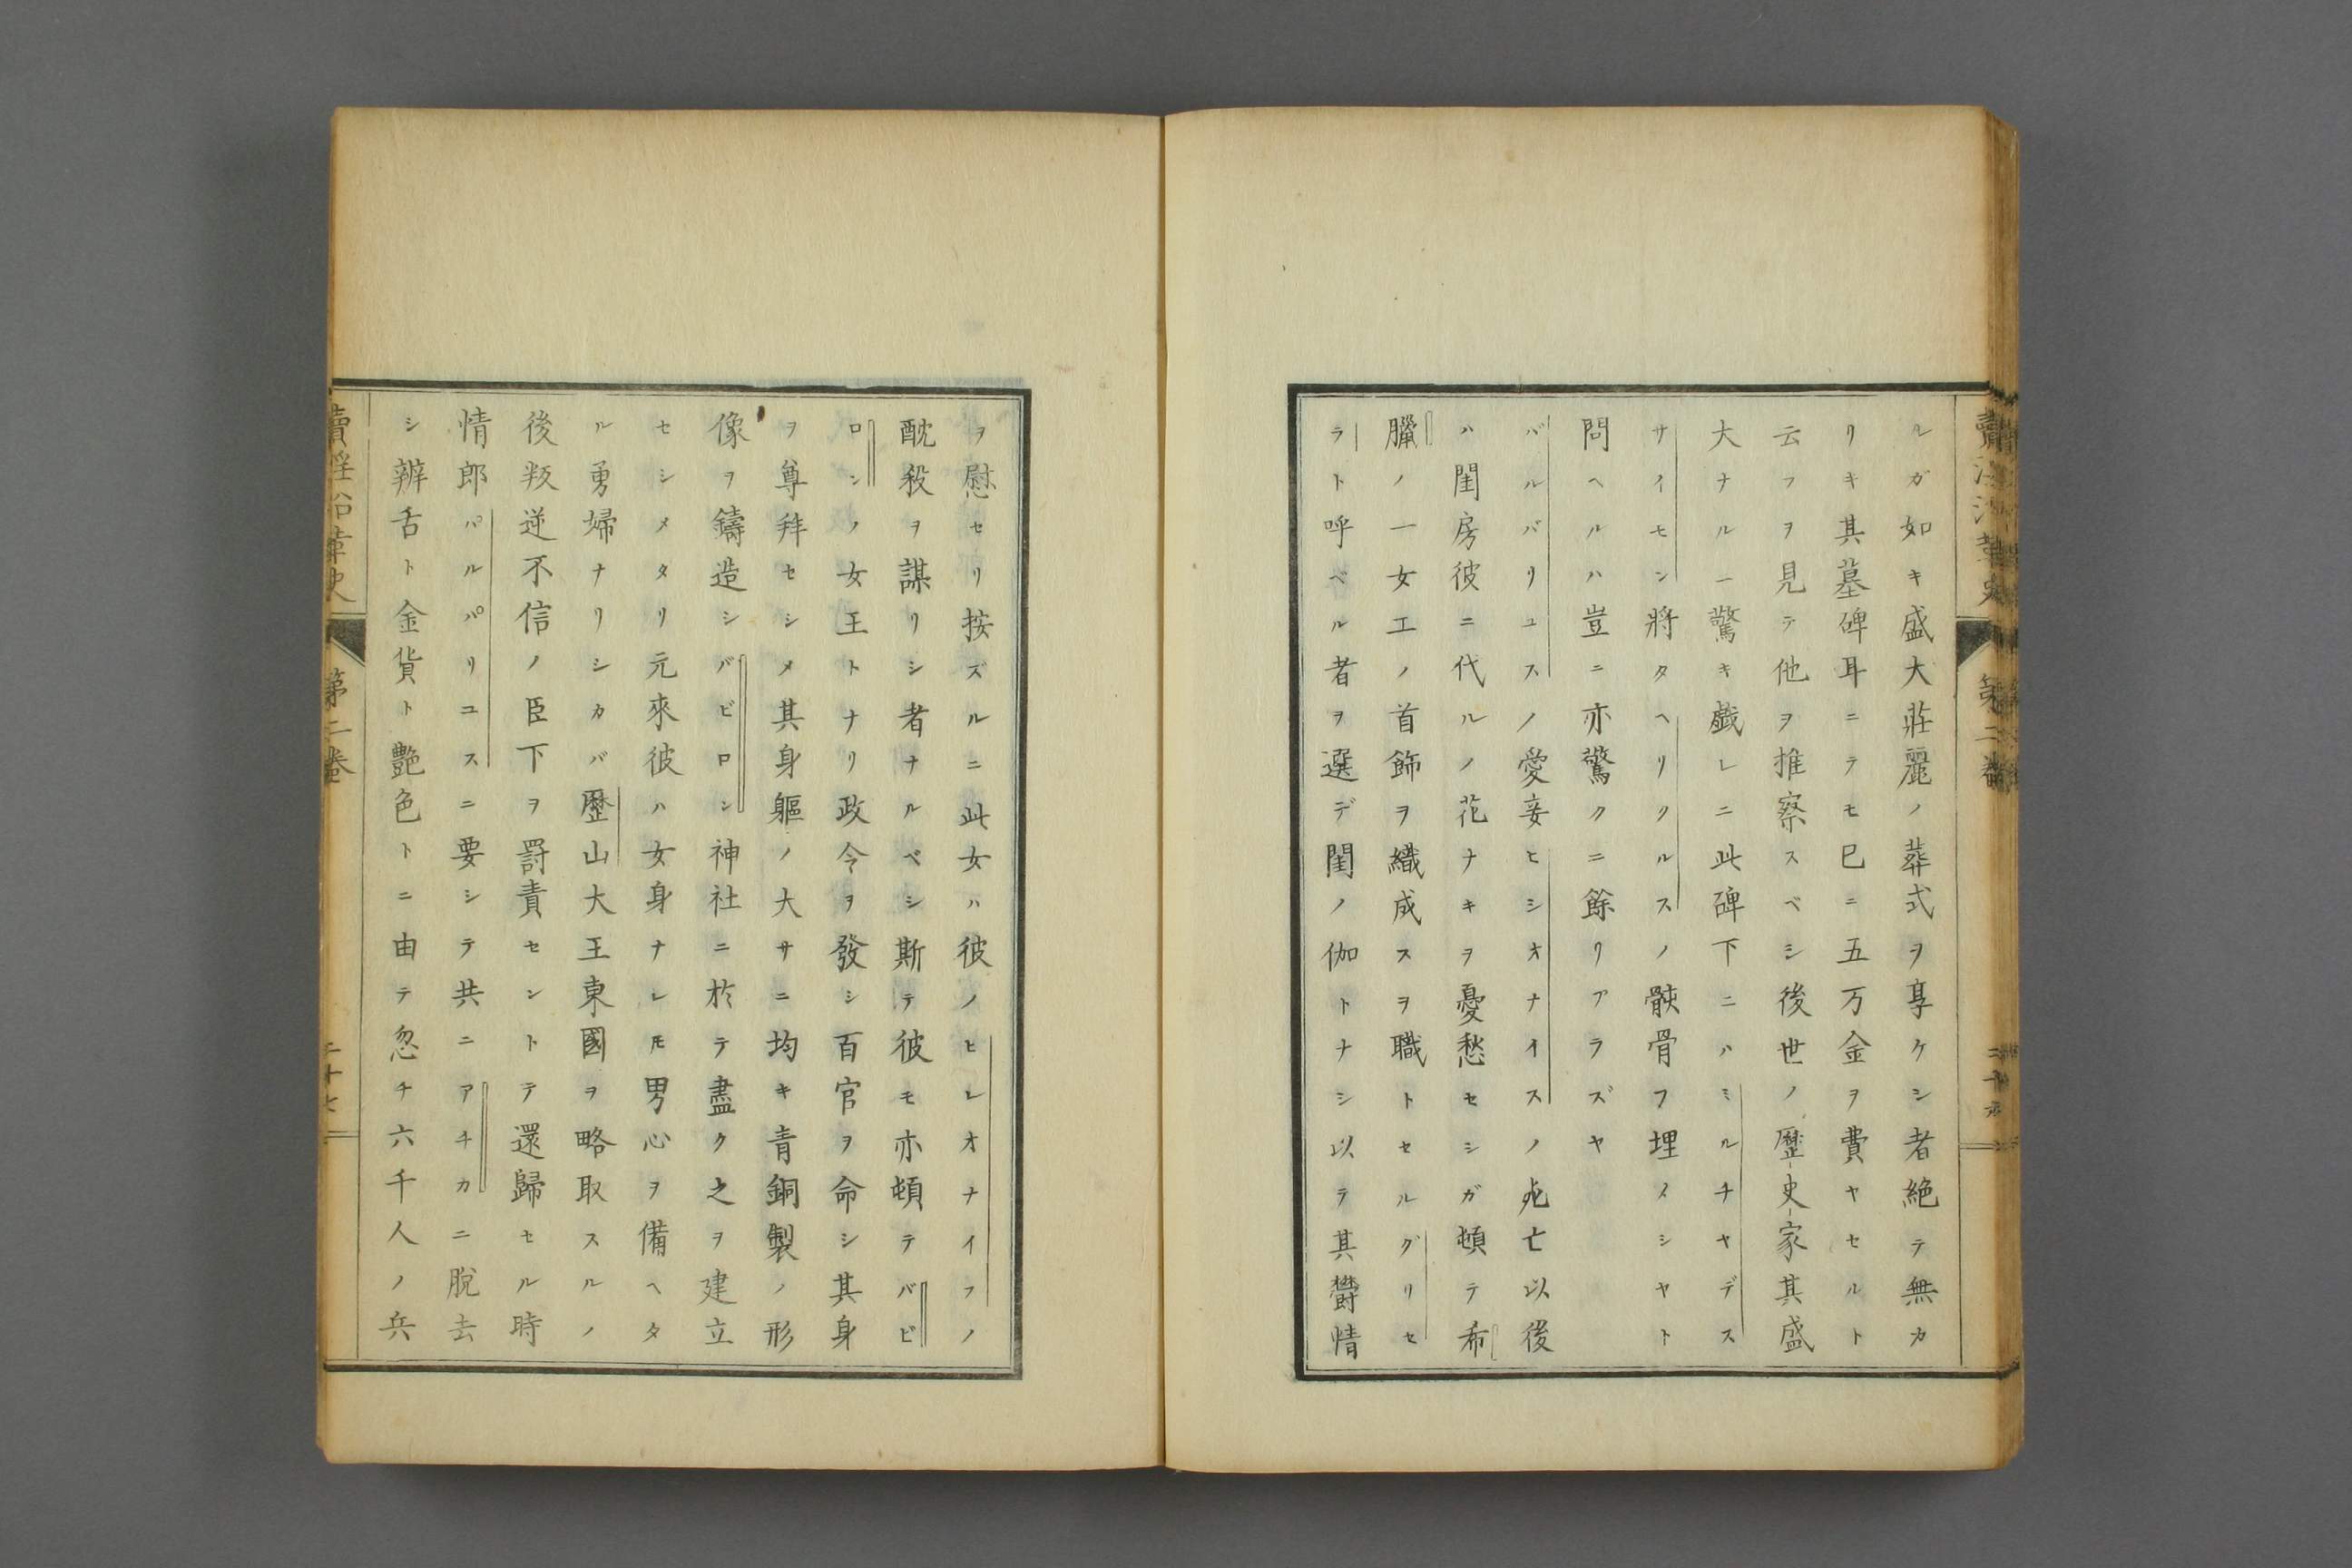 ルガ如キ盛大莊麗ノ葬式ヲ享ケシ者絶テ無カ
リキ其墓碑耳ニテモ已ニ五万金ヲ費ヤセルト
云フヲ見テ他ヲ推察スベシ後世ノ歷史家其盛
大ナル一驚キ戯レニ此碑下ニハミルチヤデス
サイモン將タヘリクルスノ骸骨フ埋メシヤト
問ヘルハ豈ニ亦驚クニ餘リアラズヤ
バルバリユスノ愛妾ヒシオナイスノ死亡以後
ハ閨房彼ニ代ルノ花ナキヲ憂愁セシガ頓テ希
臘ノ一女工ノ首飾ヲ織成スヲ職トセルグリセ
ラト呼ベル者ヲ選デ閨ノ伽トナシ以テ其欝情
ヲ慰セリ按ズルニ此女ハ彼ノヒレオナイフノ
酖殺ヲ謀リシ者ナルベシ斯テ彼モ亦頓テバビ
ロンノ女王トナリ政令ヲ發シ百官ヲ命シ其身
ヲ尊拜セシメ其身軀ノ大サニ均キ青銅製ノ形
像ヲ鑄造シバビロン神社ニ於テ盡ク之ヲ建立
セシメタリ元來彼ハ女身ナレ𪜈男心ヲ備ヘタ
ル勇婦ナリシカバ歷山大王東國ヲ略取スルノ
後叛逆不信ノ臣下ヲ罸責セントテ還歸セル時
情郎パルパリユスニ要シテ共ニアチカニ脫去
シ辨舌ト金貨ト艷色トニ由テ忽チ六千人ノ兵
賣淫沿革史
第二卷
二十七